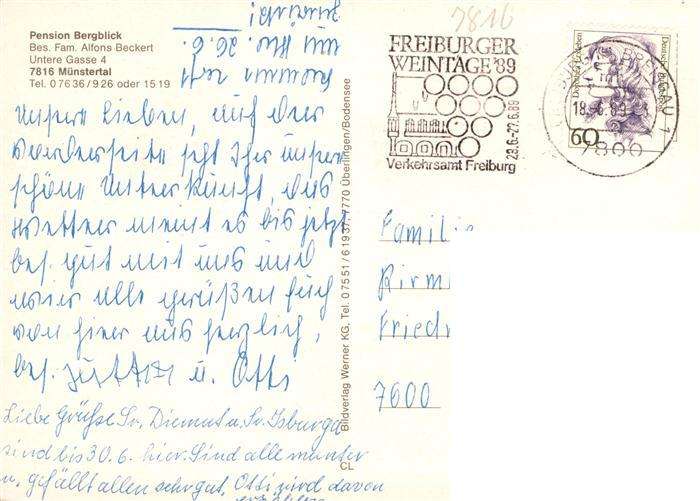 Pension Bergblick
Bes. Fam. Alfons Beckert
Untere Gasse 4
7816 Münstertal
Tel. 07636/926 oder 1519
Unsere Lieben, auf der
Vorderseite seht Ihr unsere
schöne Unterkunft, das
Wetter meint es bis jetzt
bes. gut mit uns und
wir alle grüßen Euch
von hier aus herzlich,
bes. u. Otti
kommen
um Uhr. 26.6.
Liebe Grüße Sr. Diemut u. Sr. Isburga
sind bis 30.6. hier. Sind alle munter
u. gefällt allen sehr gut. Otti wird davon
erzählen
Bildverlag Werner KG, Tel. 07551/61937, 7770 Überlingen/Bodensee
CL
7816
FREIBURGER
WEINTAGE '89
23.6.-27.6.89
Verkehrsamt Freiburg
Deutsche Bundespost
60
BREISGAU 1
7800
Famili
Firm
Friedr
7600